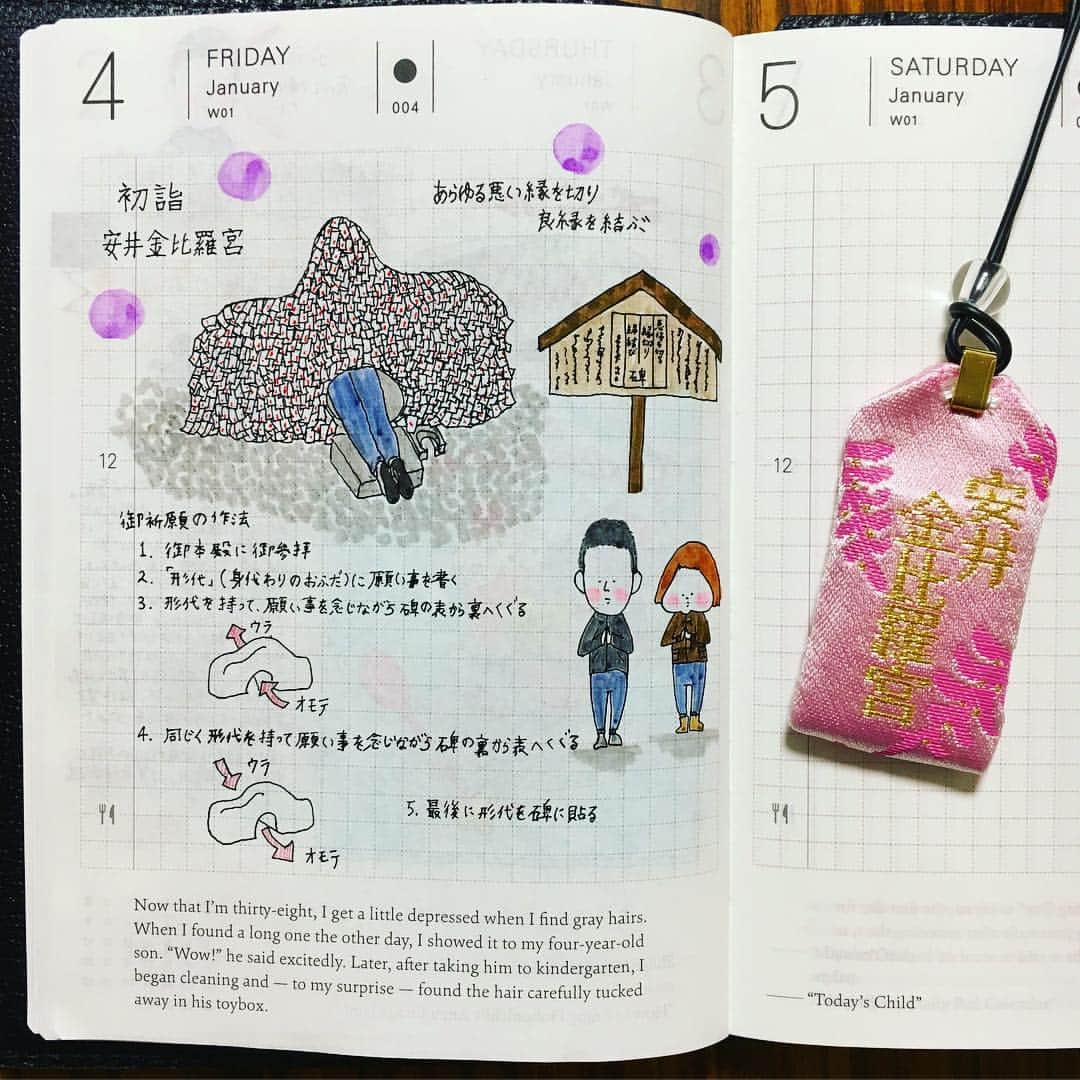 4
FRIDAY
January
W01
004
初詣
安井金比羅宮
あらゆる悪い縁を切り
良縁を結ぶ
12
御祈願の作法
1. 御本殿に御参拝
2.「形代」(身代わりのおふだ)に願い事を書く
3. 形代を持って、願い事を念じながら碑の表から裏へくぐる
ウラ
オモテ
4. 同じく形代を持って願い事を念じながら碑の裏から表へくぐる
ウラ
オモテ
5. 最後に形代を碑に貼る
Now that I'm thirty-eight, I get a little depressed when I find gray hairs.
When I found a long one the other day, I showed it to my four-year-old
son. “Wow!” he said excitedly. Later, after taking him to kindergarten, I
began cleaning and — to my surprise — found the hair carefully tucked
away in his toybox.
5
SATURDAY
January
W01
12
安井
金比羅宮
“Today's Child”